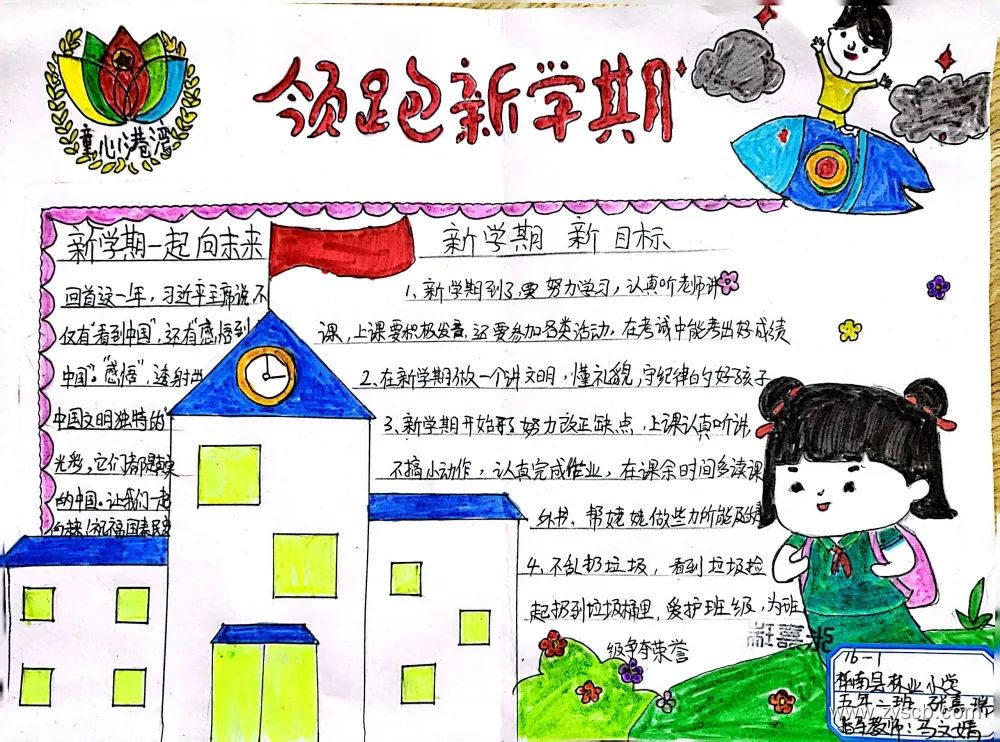 童心港湾
领跑新学期
新学期一起向未来
回首这一年，习近平主席说不
仅有"看到中国"，还有"感悟到
中国"。"感悟"，透射出
中国文明独特的
光彩。它们都是真实
的中国。让我们一起
新学期 新目标
1、新学期到了，要努力学习，认真听老师讲
课，上课要积极发言，还要参加各类活动。在考试中能考出好成绩
2、在新学期做一个讲文明，懂礼貌，守纪律的好孩子
3、新学期开始了努力改正缺点，上课认真听讲
不搞小动作，认真完成作业，在课余时间多读课
外书。帮姥姥做些力所能及的
4、不乱扔垃圾，看到垃圾捡
起扔到垃圾桶里。爱护班级，为班
级争夺荣誉
16-1
县林业小学
五年二班
指导教师：马文婧
www.zyscb.com